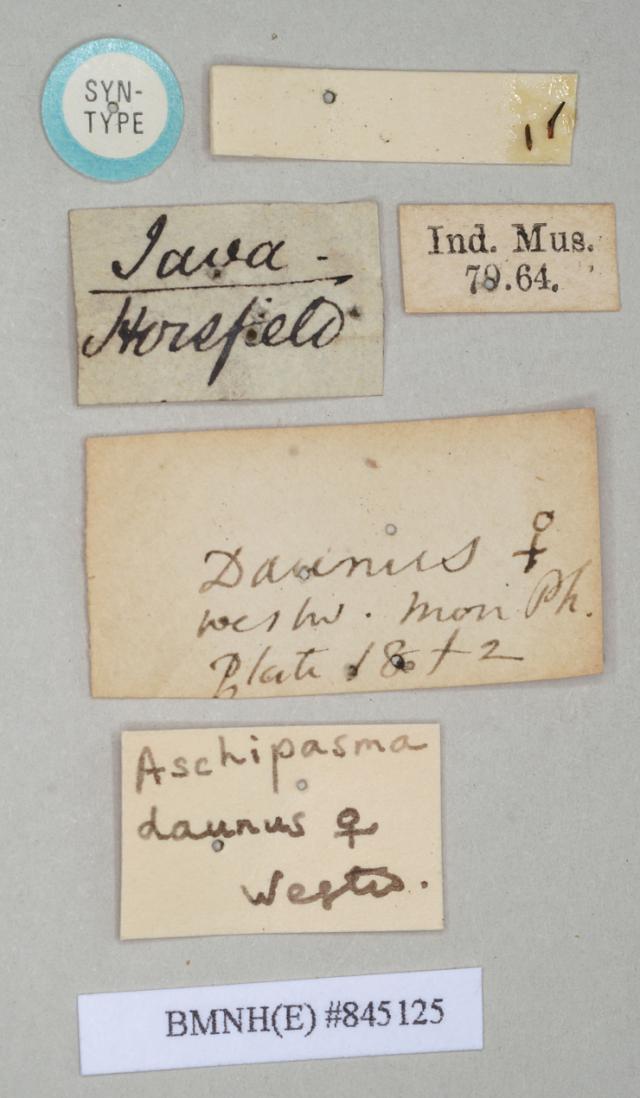 SYN-
TYPE
Java -
Horsfield
Ind. Mus.
79.64.
Daunus ♀
Westw. Mon Ph.
Plate 18 f 2
Aschipasma
daunus ♀
Westw.
BMNH(E) #845125